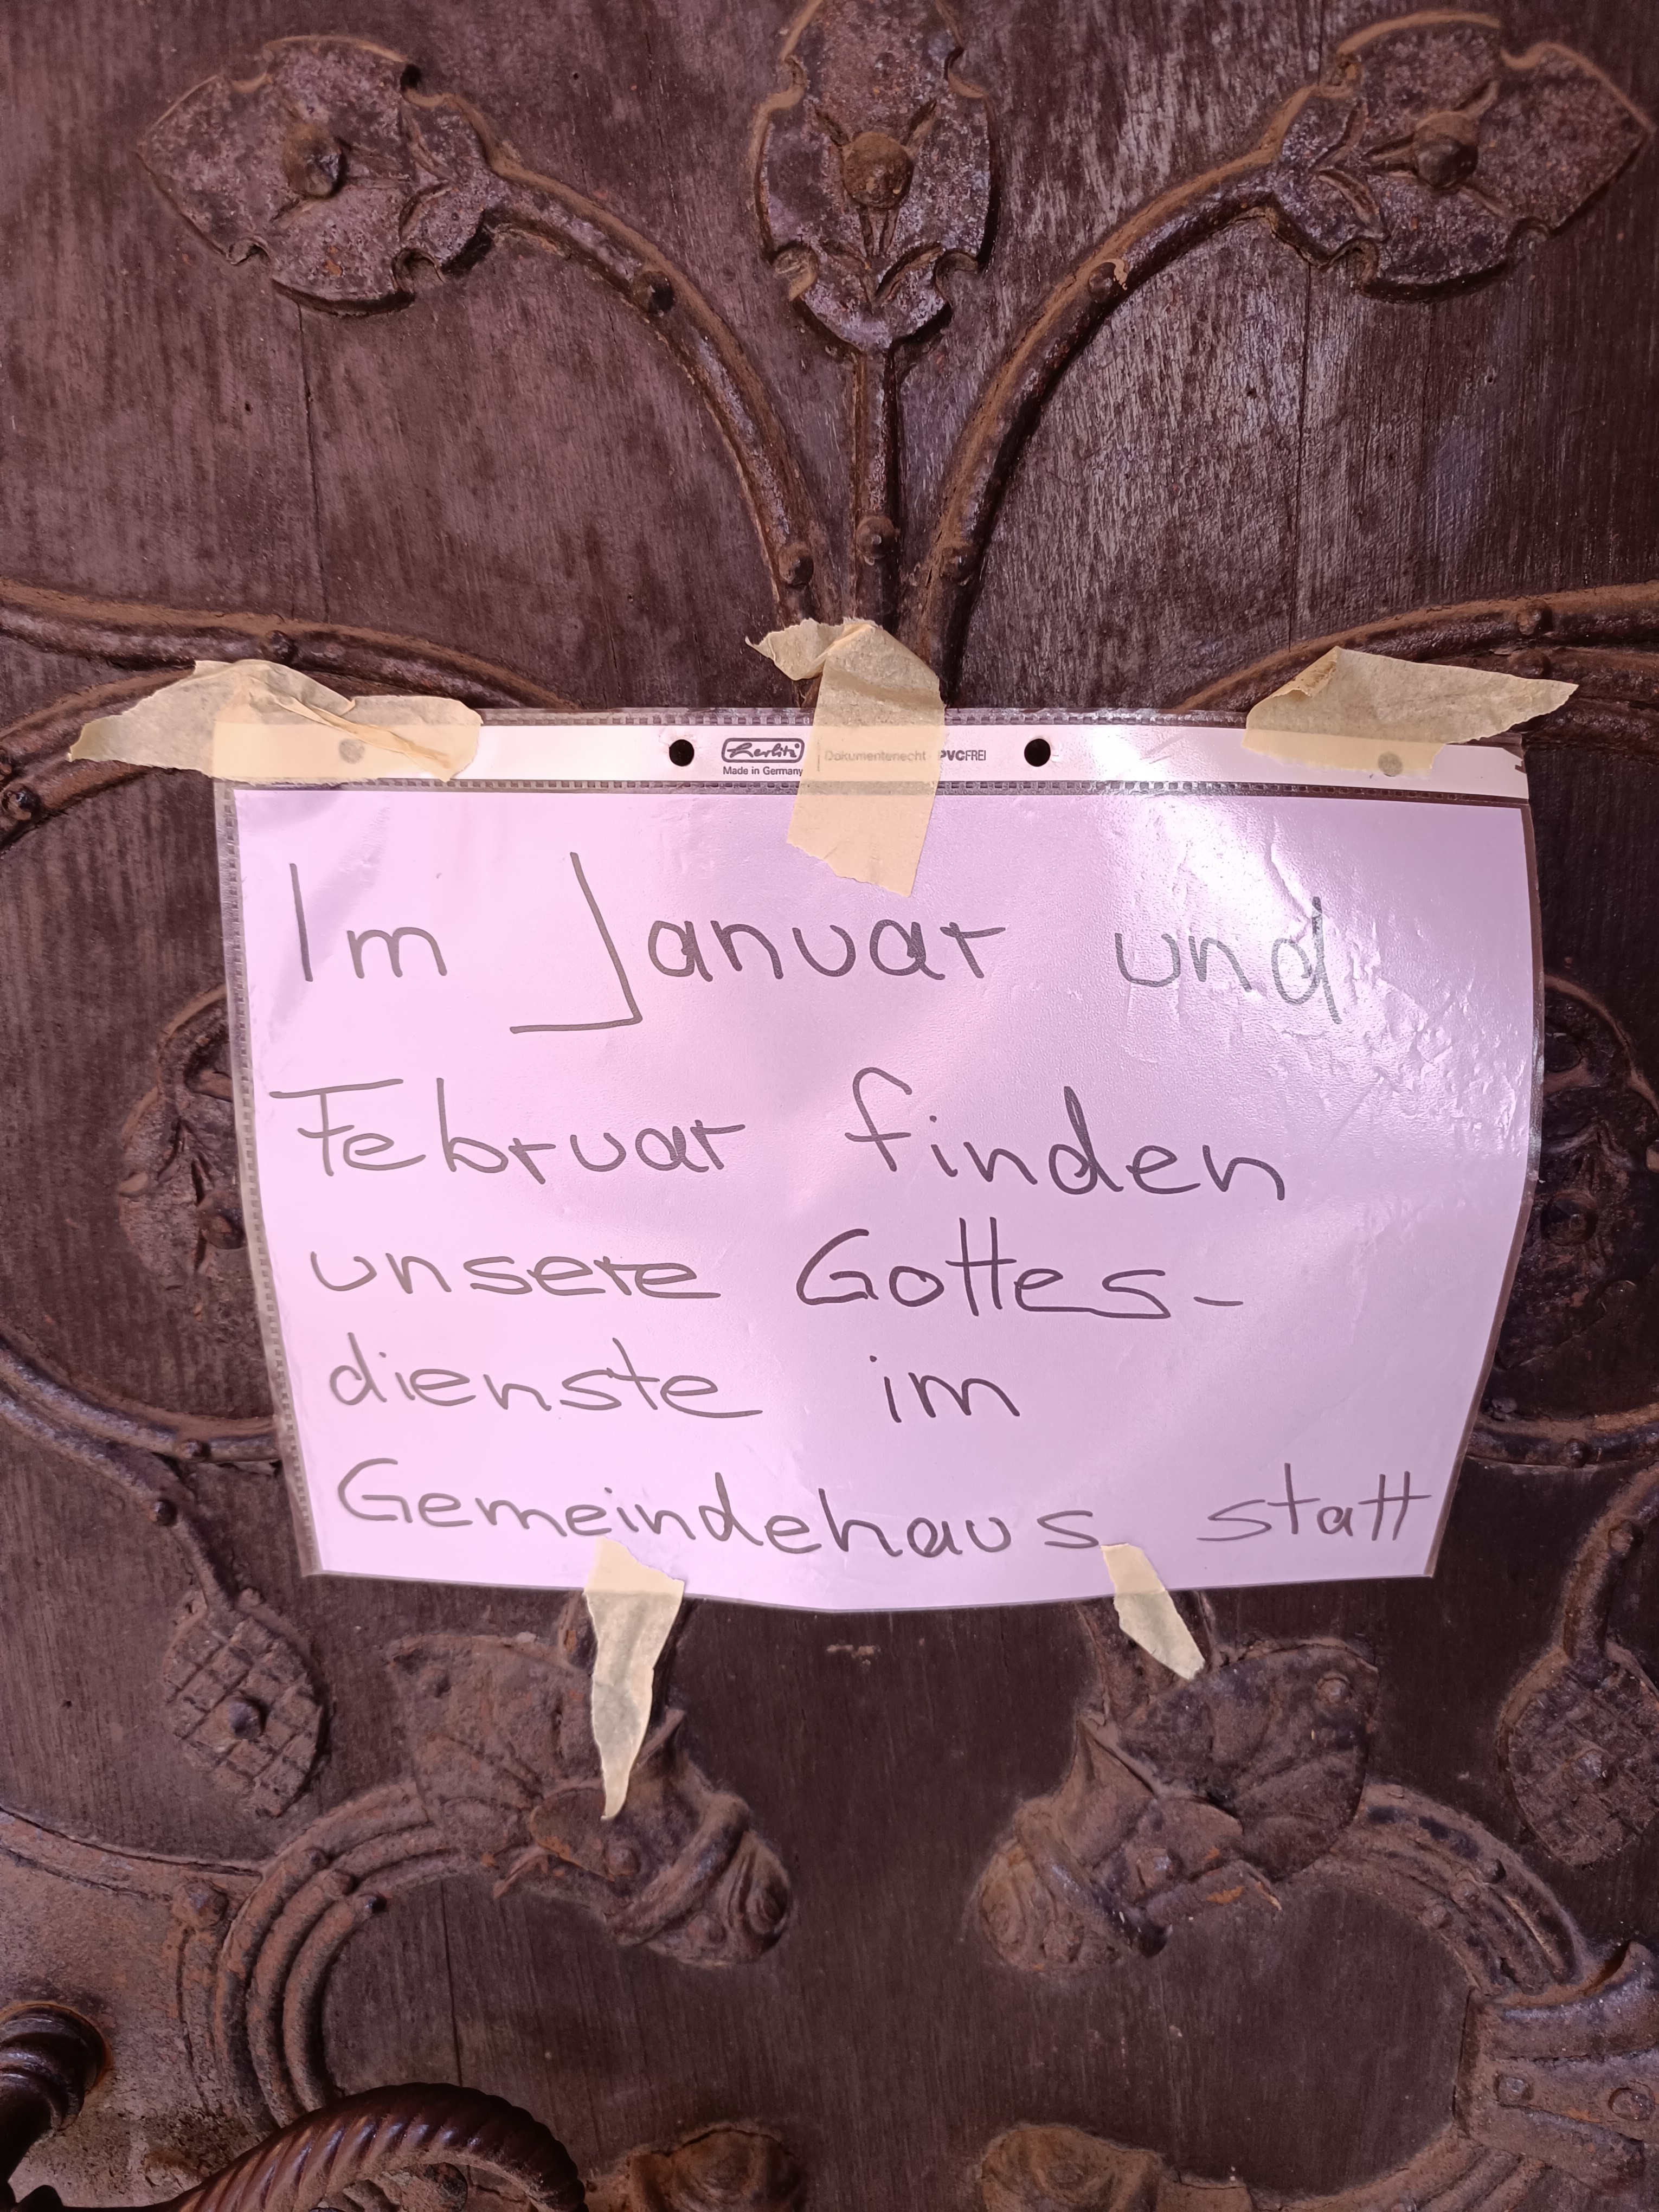 herlitz Dokumentenecht · PVCFREI
Made in Germany
Im Januar und
Februar finden
unsere Gottes-
dienste im
Gemeindehaus statt